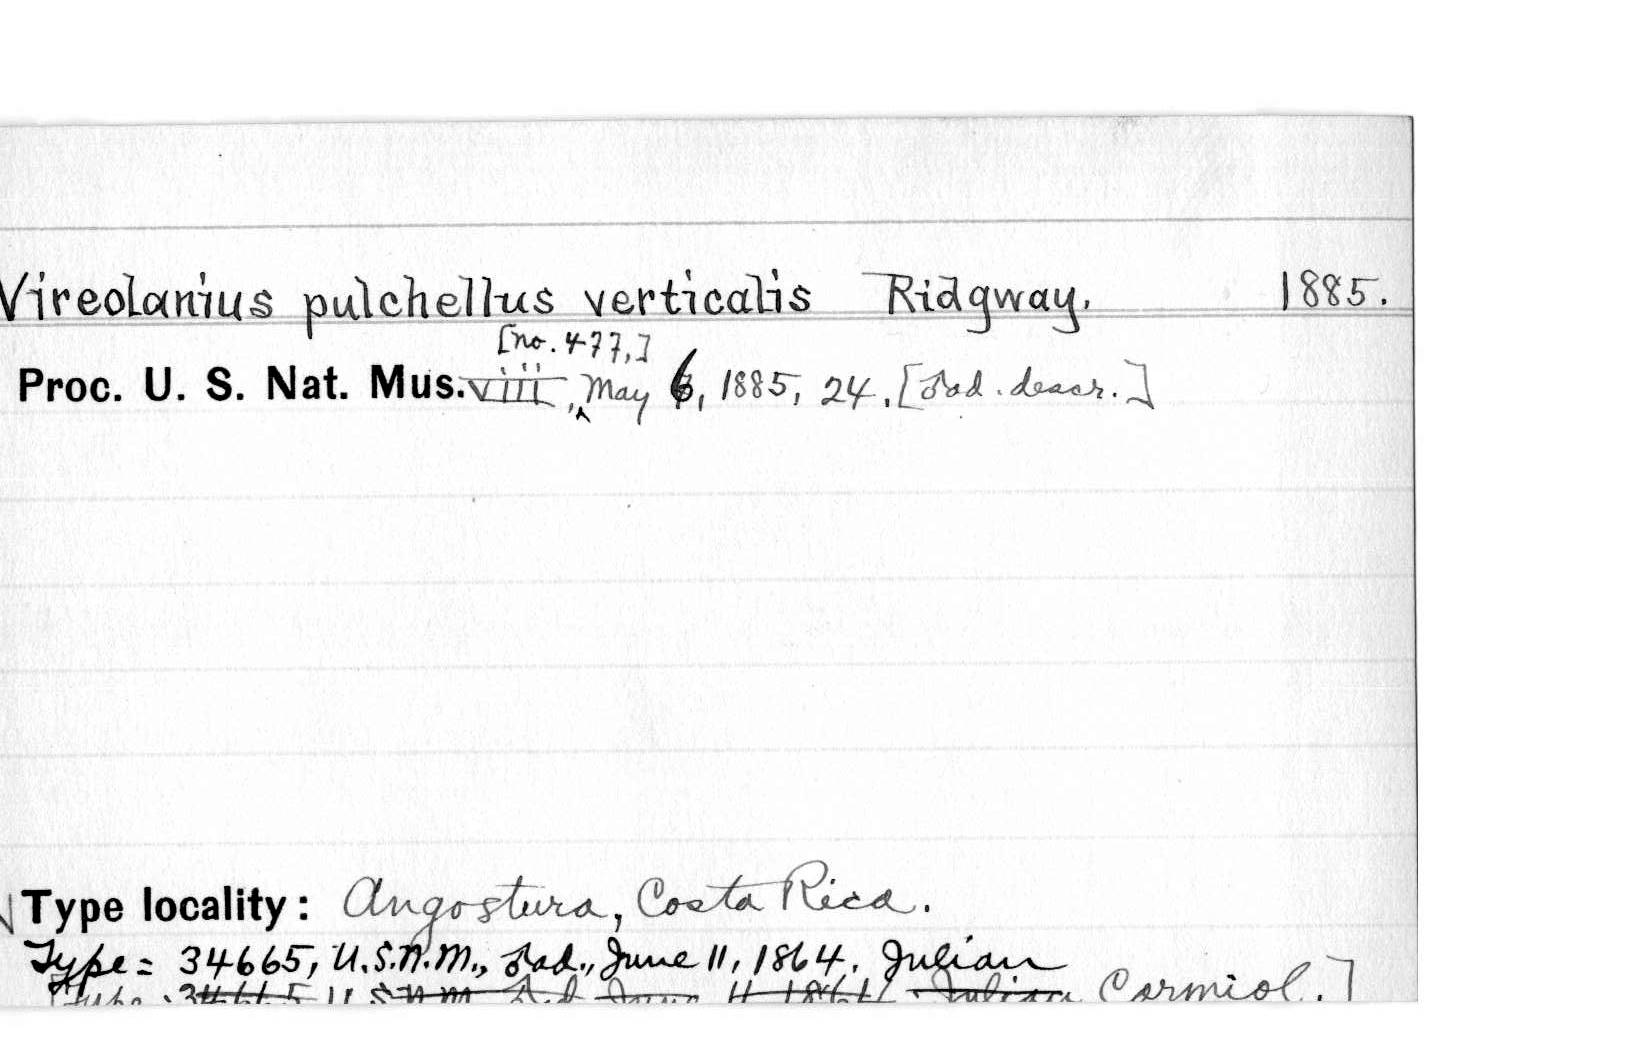 Vireolanius pulchellus verticalis Ridgway. 1885.
[no. 477,]
Proc. U. S. Nat. Mus. viii, May 6, 1885, 24. [♂ad. descr.]
Type locality: Angostura, Costa Rica.
Type = 34665, U.S.N.M., ♂ad., June 11, 1864. Julian
[Type : 34665 U.S.N.M. ♂ad. June 11 1864 Julian Carmiol.]